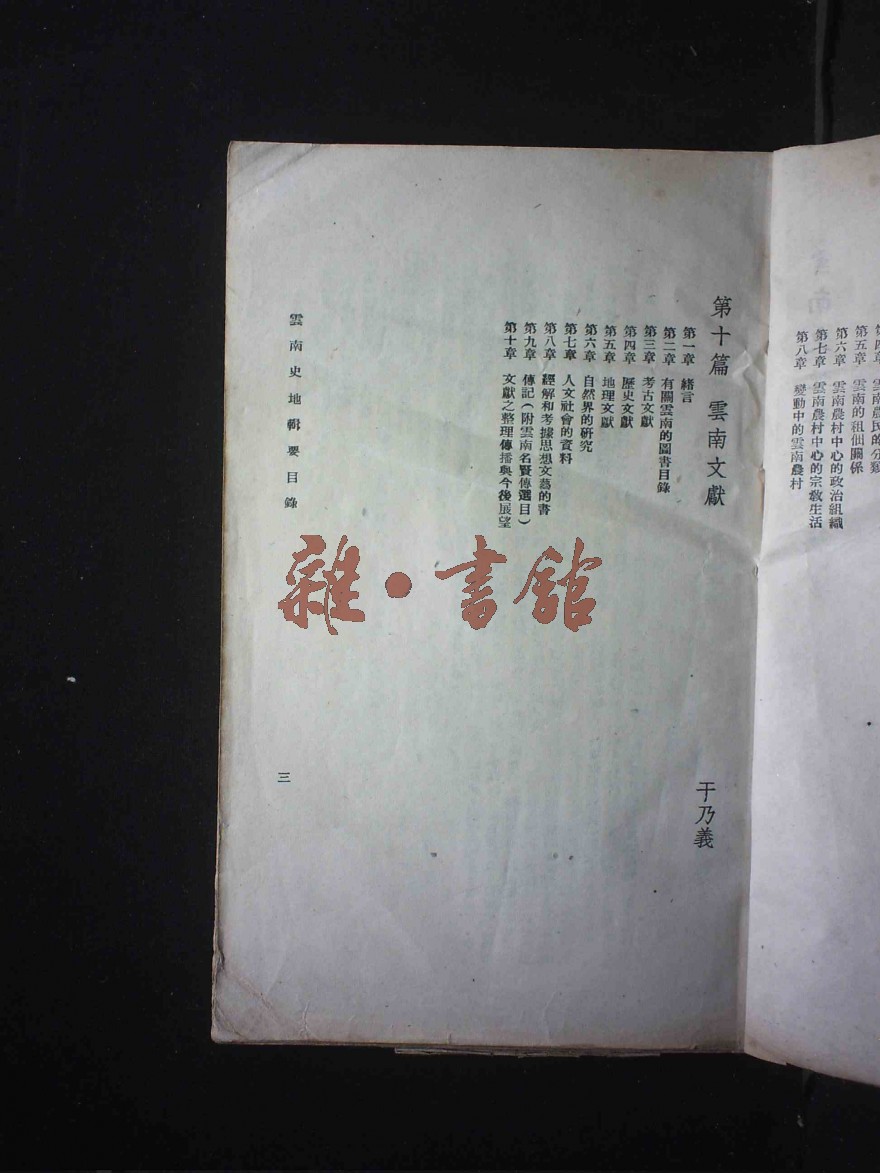 雲南農民的分類
第五章 雲南的租佃關係
第六章 雲南農村中心的政治組織
第七章 雲南農村中心的宗敎生活
第八章 變動中的雲南農村
第十篇 雲南文獻
于乃義
第一章 緒言
第二章 有關雲南的圖書目錄
第三章 考古文獻
第四章 歷史文獻
第五章 地理文獻
第六章 自然界的研究
第七章 人文社會的資料
第八章 經解和考據思想文藝的書
第九章 傳記(附雲南名賢傳選目)
第十章 文獻之整理傳播與今後展望
雲南史地輯要目錄
三
雜·書館